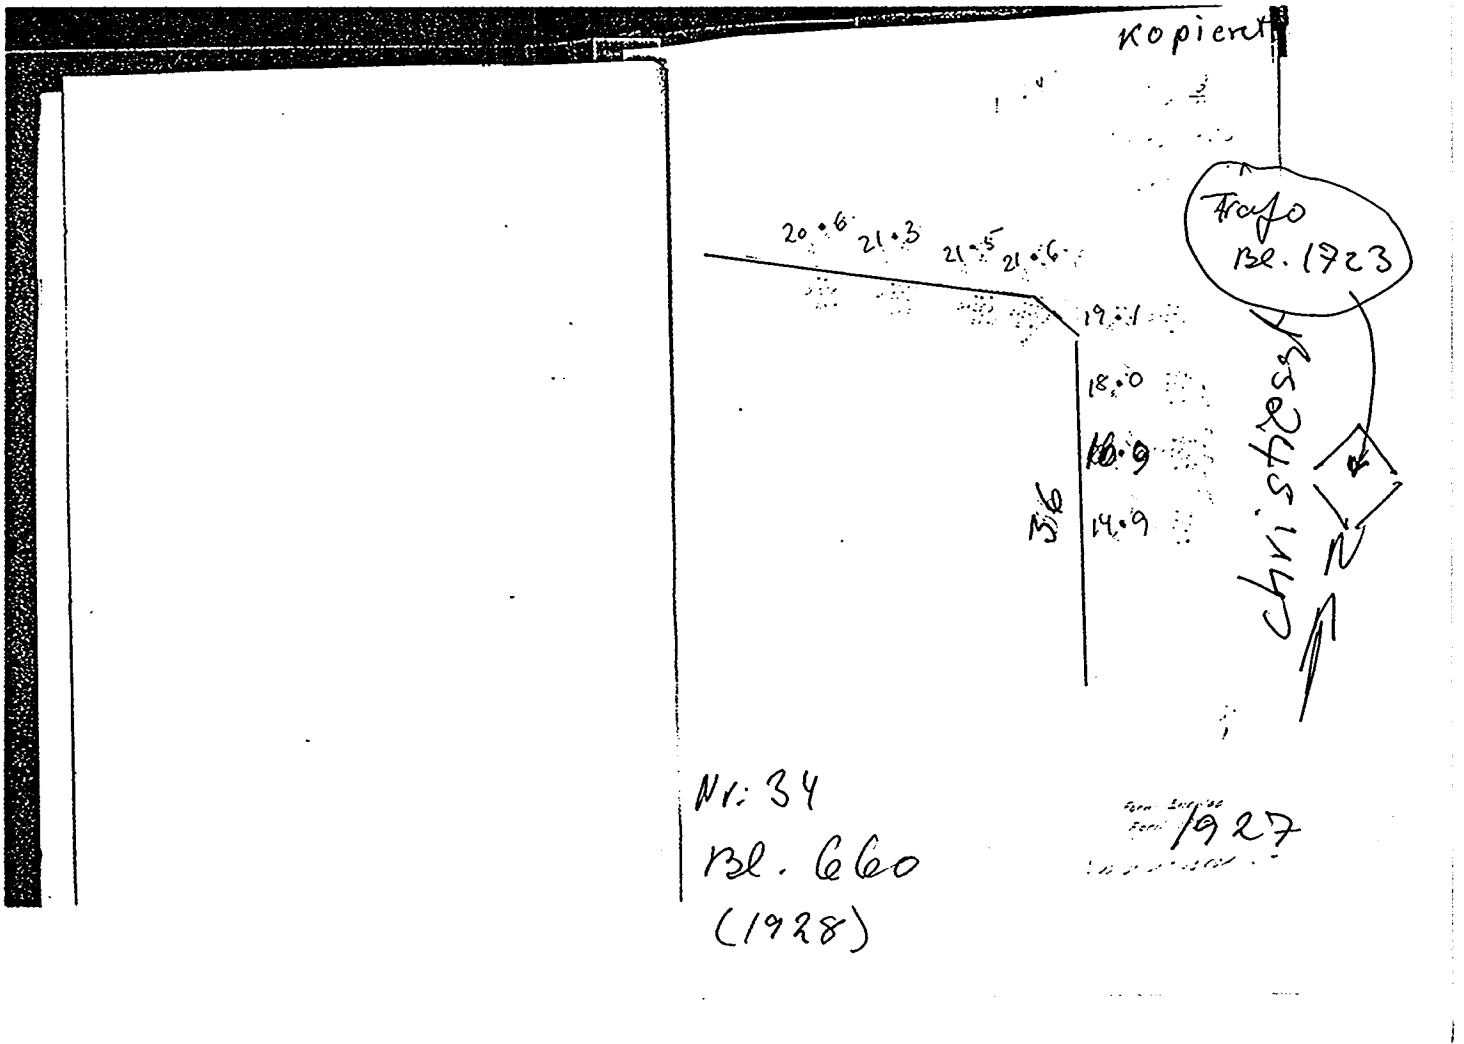 Kopieret
Trafo
Bl. 1723
20.6 21.3 21.5 21.6
19.1
18.0
14.9
36
N
Nr: 34
Bl. 660
(1928)
1927